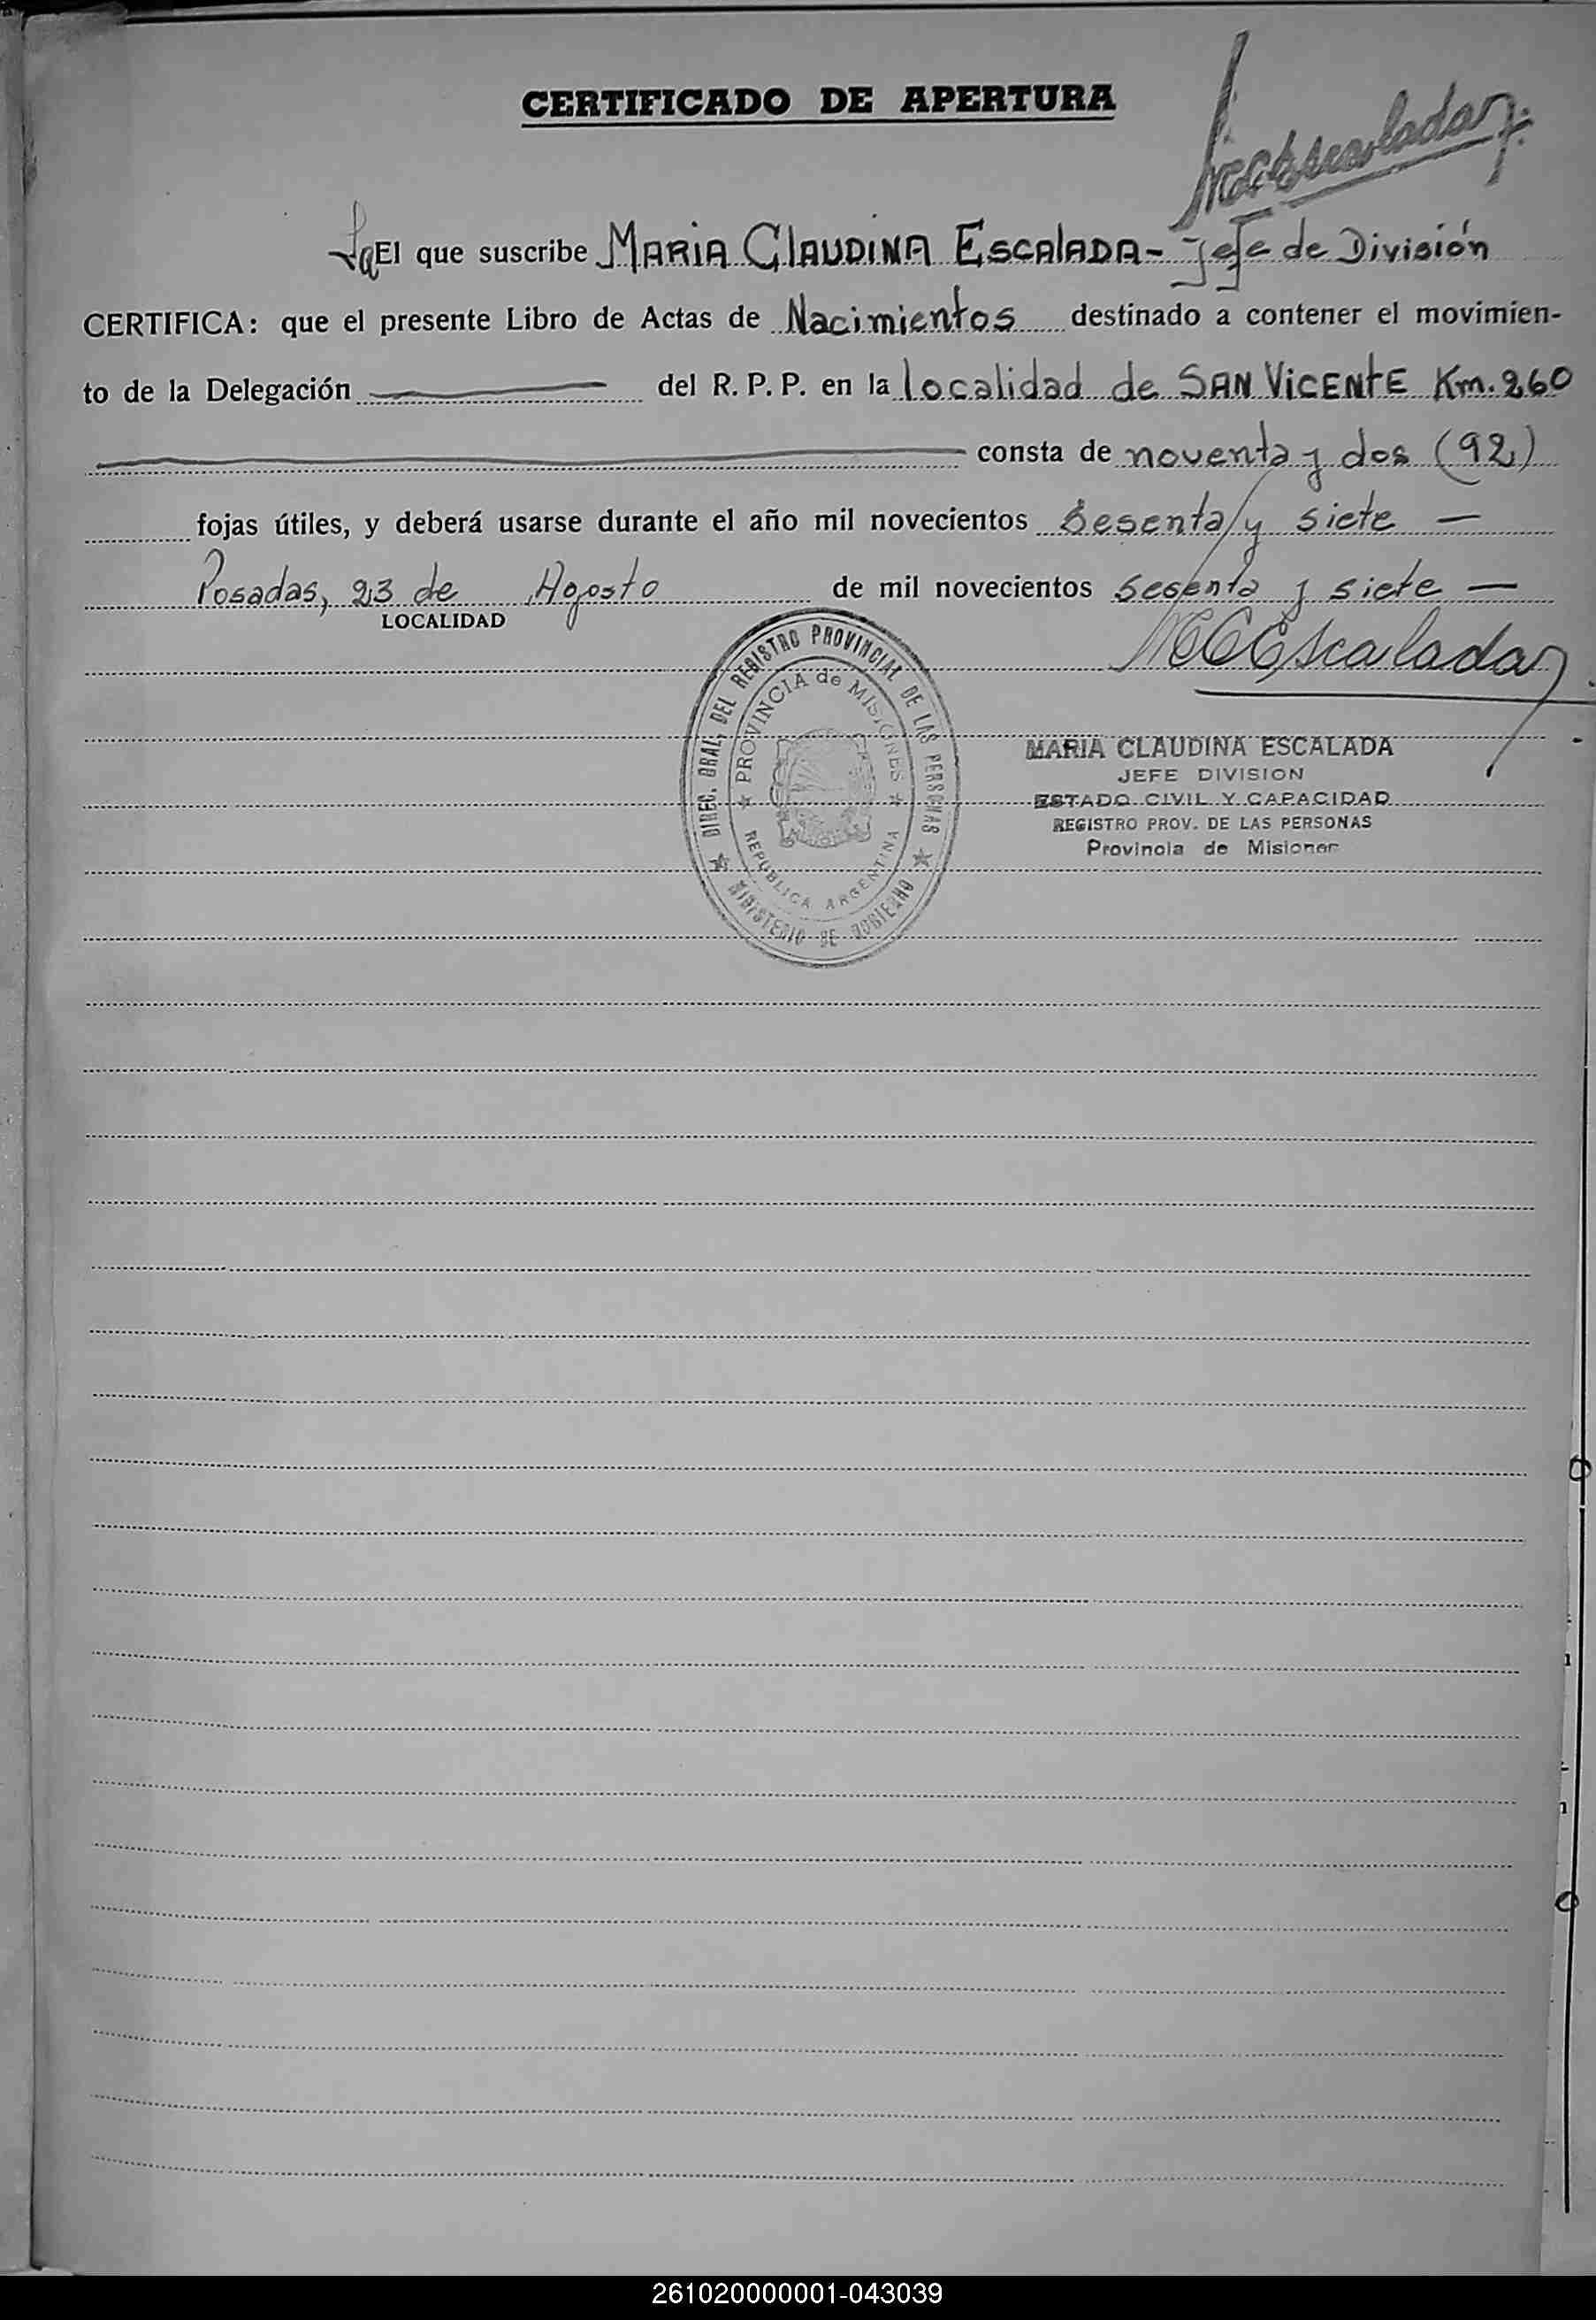 CERTIFICADO DE APERTURA
MCEscalada
La El que suscribe MARIA CLAUDINA ESCALADA - Jefe de División
CERTIFICA: que el presente Libro de Actas de Nacimientos destinado a contener el movimien-
to de la Delegación del R. P. P. en la localidad de SAN VICENTE Km. 260
consta de noventa y dos (92)
fojas útiles, y deberá usarse durante el año mil novecientos Sesenta y siete —
Posadas, 23 de Agosto de mil novecientos Sesenta y siete —
LOCALIDAD
MCEscalada
DIREC. GRAL. DEL REGISTRO PROVINCIAL DE LAS PERSONAS
PROVINCIA de MISIONES
REPUBLICA ARGENTINA
MINISTERIO DE GOBIERNO
MARIA CLAUDINA ESCALADA
JEFE DIVISION
ESTADO CIVIL Y CAPACIDAD
REGISTRO PROV. DE LAS PERSONAS
Provincia de Misiones
261020000001-043039